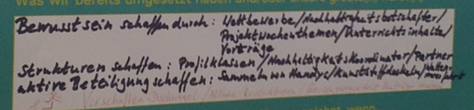 Was wir bereits umgesetzt haben und
Bewusst sein schaffen durch: Wettbewerbe/Nachhaltigkeitsbotschafter/
Projektwochenthemen/Unterrichtsinhalte/
Vorträge
Strukturen schaffen: Profilklassen/Nachhaltigkeitskoordinator/Partner
aktive Beteiligung schaffen: Sammeln von Handys/Kunststoffdeckeln/